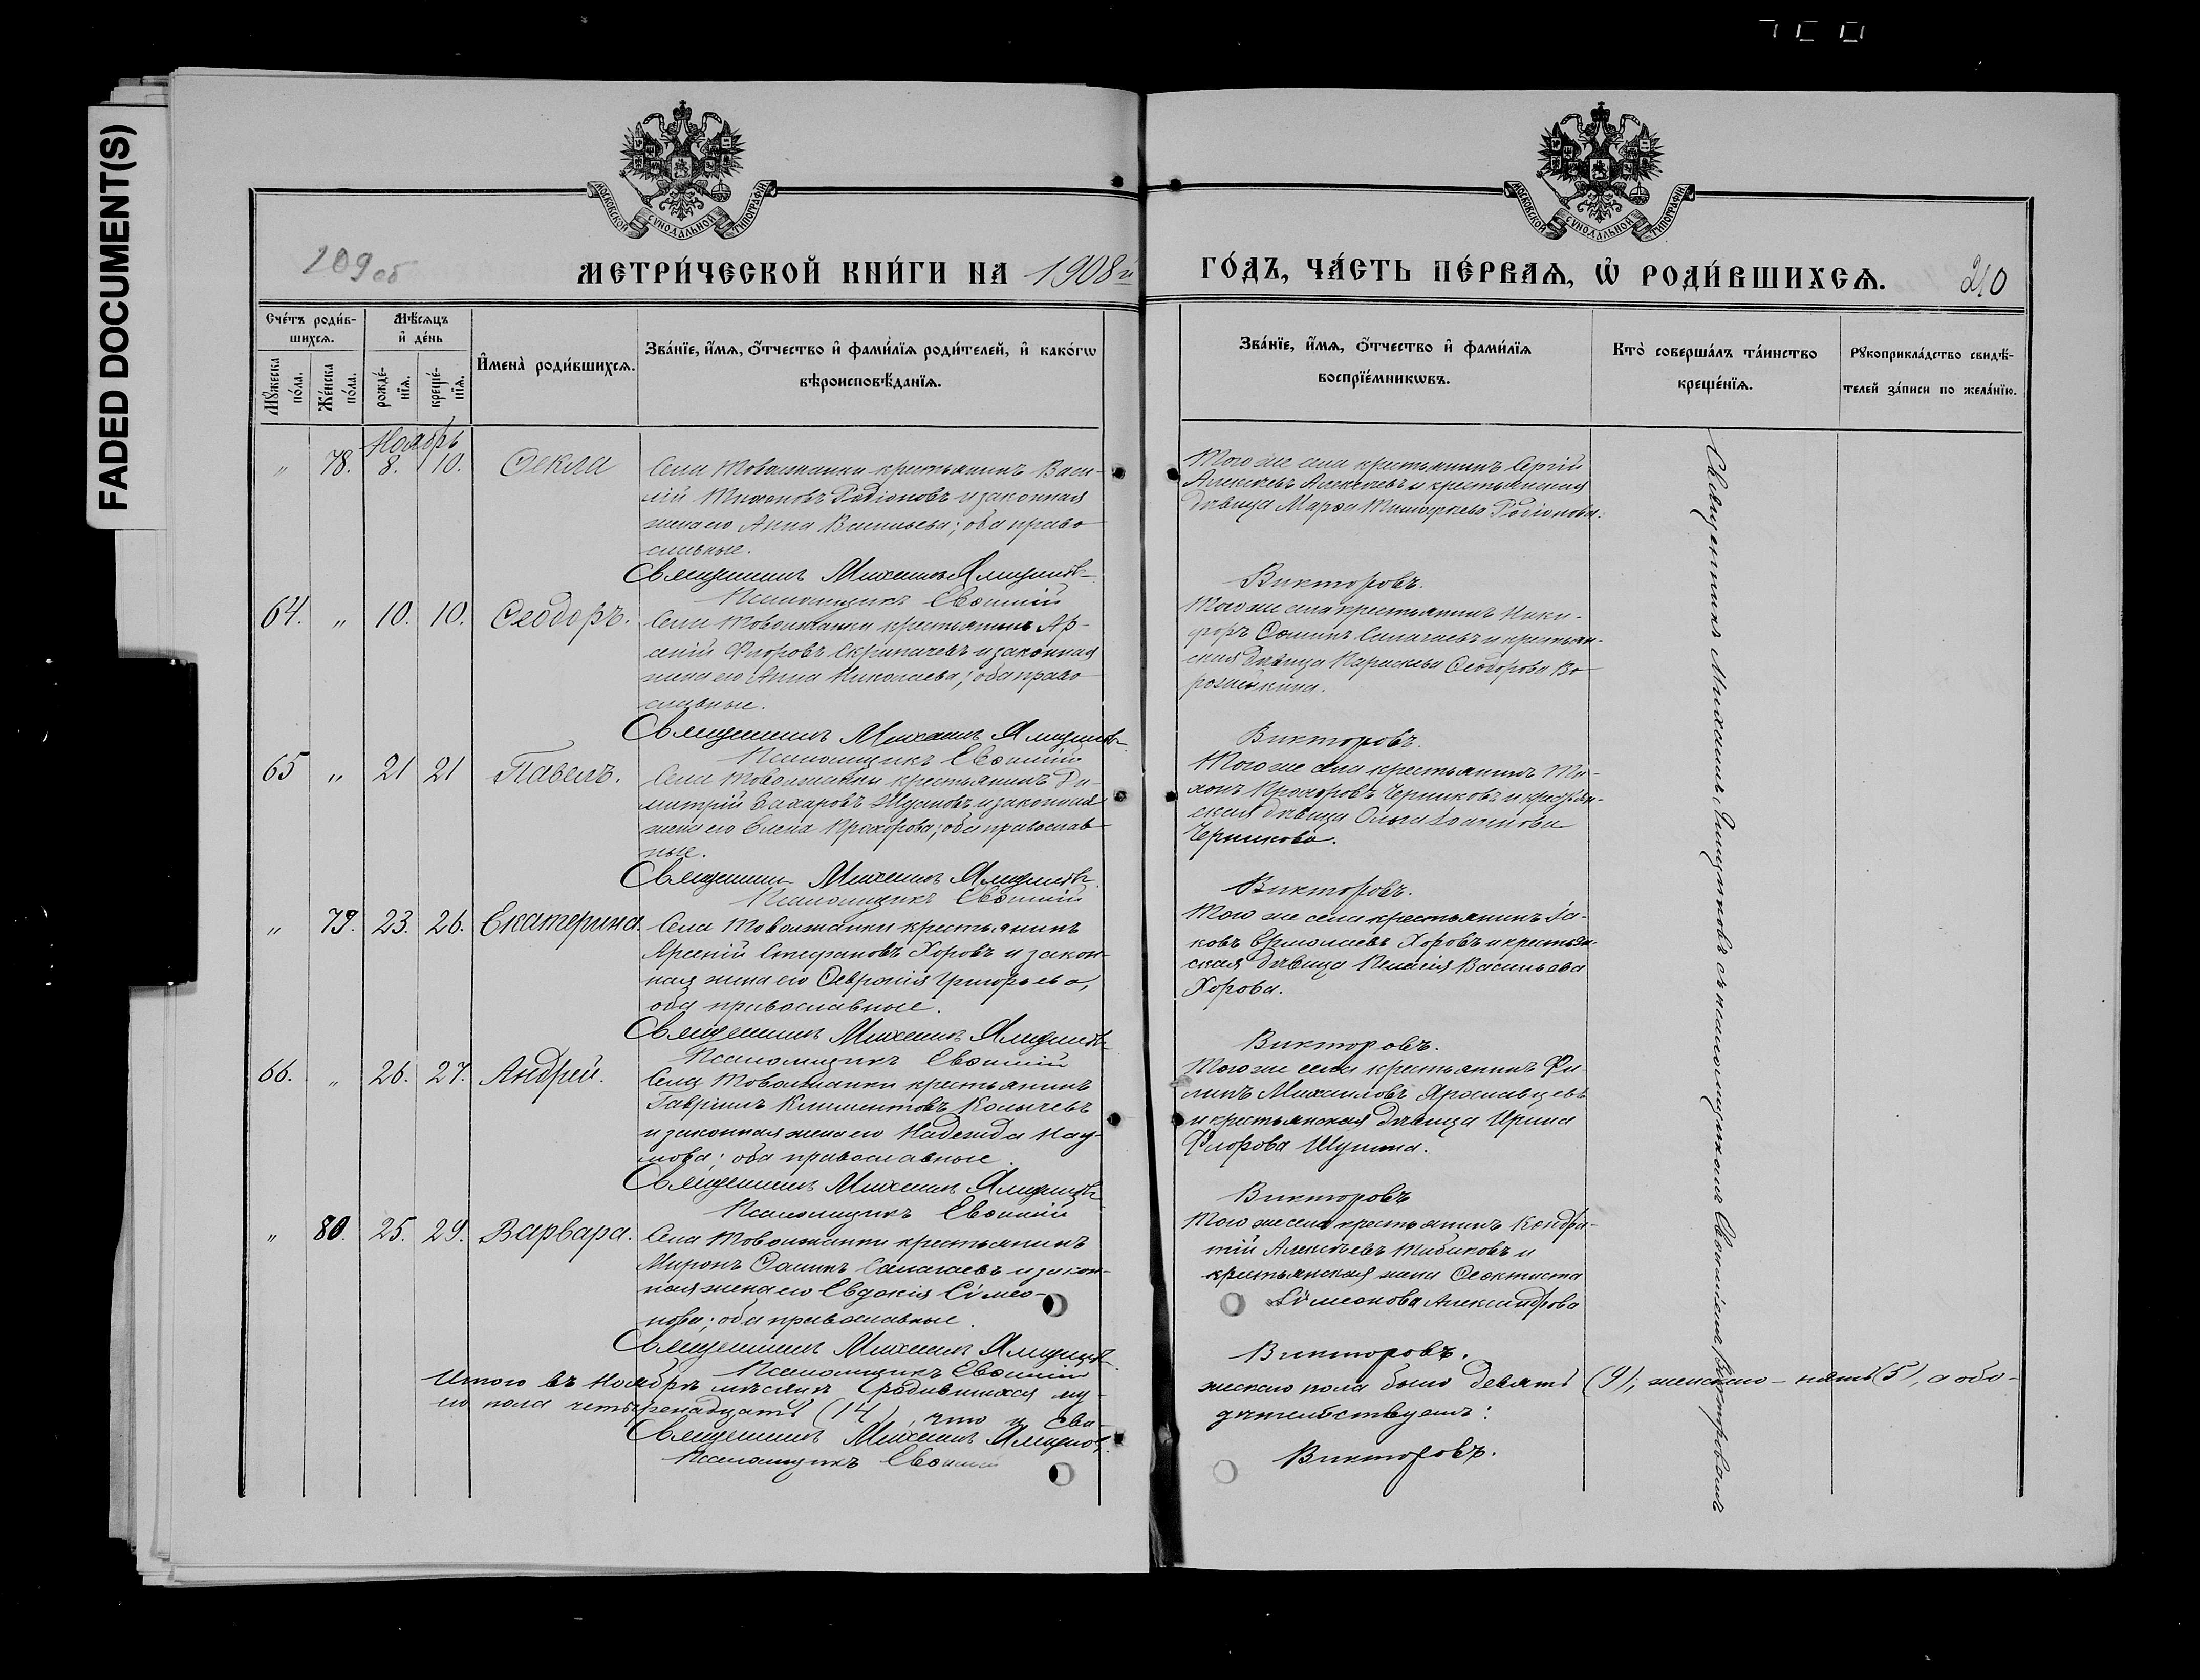 FADED DOCUMENT(S)
МОСКОВСКОЙ СѴНОДАЛЬНОЙ ТИПОГРАФІИ
МОСКОВСКОЙ СѴНОДАЛЬНОЙ ТИПОГРАФІИ
209 об
МЕТРИ́ЧЕСКОЙ КНИ́ГИ НА 1908 й
ГО́ДЪ, ЧА́СТЬ ПЕ́РВАѦ, Ѽ РОДИ́ВШИХСѦ.
210
Сче́тъ роди́в-
шихсѧ.
Мꙋ́жеска по́ла.
Же́нска по́ла.
Мѣ́сѧцъ
и҆ де́нь
рожде́-
нїѧ.
креще́-
нїѧ.
И҆мена̀ роди́вшихсѧ.
Зва́нїе, и҆́мѧ, ѻ҆́тчество и҆ фами́лїѧ роди́телей, и҆ како́гѡ
вѣроисповѣ́данїѧ.
Зва́нїе, и҆́мѧ, ѻ҆́тчество и҆ фами́лїѧ
воспрїе́мникѡвъ.
Кто̀ соверша́лъ та́инство
креще́нїѧ.
Рꙋкоприкла́дство свидѣ́-
телей за́писи по жела́нїю.
Ноябрь
" 78. 8. 10. Ѳекла
Села Товолжанки крестьянинъ Васи-
лій Тихоновъ Родіоновъ и законная
жена его Анна Васильева; оба право
славные.
Священникъ Михаилъ
Псаломщикъ Евфимій
Того же села крестьянинъ Сергій
Алексѣевъ Алексѣевъ и крестьянская
дѣвица Марѳа Тимофеева Родіонова.
Викторовъ.
64. " 10. 10. Ѳеодоръ.
Села Товолжанки крестьянинъ Ар-
сеній Флоровъ Скрипачевъ и законная
жена его Анна Николаева; оба право
славные.
Священникъ Михаилъ
Псаломщикъ Евфимій
Того же села крестьянинъ Ники-
форъ Ѳоминъ Салагаевъ и крестьян-
ская дѣвица Параскева Ѳеодорова Во
рожейкина.
Викторовъ.
65 " 21 21 Павелъ.
Села Товолжанки крестьянинъ Ди-
митрій Захаровъ и законная
жена его Елена Прохорова; оба православ-
ные.
Священникъ Михаилъ
Псаломщикъ Евфимій
Того же села крестьянинъ Ти-
хонъ Прохоровъ Черниковъ и крестьян-
ская дѣвица Ольга
Черникова.
Викторовъ.
" 79. 23. 26. Екатерина.
Села Товолжанки крестьянинъ
Арсеній Стефановъ Хоровъ и закон-
ная жена его Ѳевронія Григорьева,
оба православные.
Священникъ Михаилъ
Псаломщикъ Евфимій
Того же села крестьянинъ Іа-
ковъ Ермолаевъ Хоровъ и крестьян-
ская дѣвица Пелагія Васильева
Хорова.
Викторовъ.
66. " 26. 27. Андрей.
Села Товолжанки крестьянинъ
Гавріилъ Климентовъ Колычевъ
и законная жена его Надежда Нау-
мова; оба православные.
Священникъ Михаилъ
Псаломщикъ Евфимій
Того же села крестьянинъ Фи-
липъ Михаиловъ Ярославцевъ
и крестьянская дѣвица Ирина
Флорова Шунина.
Викторовъ
" 80. 25. 29. Варвара.
Села Товолжанки крестьянинъ
Миронъ Ѳоминъ Салагаевъ и закон-
ная жена его Евдокія Сімео-
нова; оба православные.
Священникъ Михаилъ
Псаломщикъ Евфимій
Того же села крестьянинъ Кондра-
тій Алексѣевъ и
крестьянская жена Ѳеоктиста
Сімеонова Александрова
Викторовъ.
Итого въ Ноябрѣ мѣсяцѣ родившихся му-
жескаго пола было девять (9), женскаго - пять (5), а обо-
его пола четырнадцать (14), что и сви-
дѣтельствуемъ:
Священникъ Михаилъ
Псаломщикъ Евфимій
Викторовъ.
Священникъ Михаилъ съ псаломщикомъ Евфиміемъ Викторовымъ